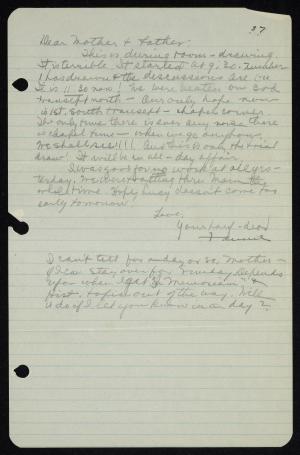 37
Dear Mother & Father
This is during room-drawing.
It is terrible. It started at 9.30. Number
1 has drawn & the discussions are
It is 11.30 now! We were beaten on 2nd
transept north - Our only hope now
is 1st South transept - chapel corner.
The only time there is ever any noise there
is chapel time - when we go anyhow.
We shall see!!!! And this is only the trial
draw! It will be an all-day affair.
I was good for no work at all yes-
terday. We were the
whole time. Hope Lucy doesn't come too
early tomorrow.
Love,
Your half-dead
I can't tell for a day or so, Mother -
if I can stay over for Sunday. Depends
upon when I get In Memoriam &
first topic out of the way. Will
it do if I let you know in a day?